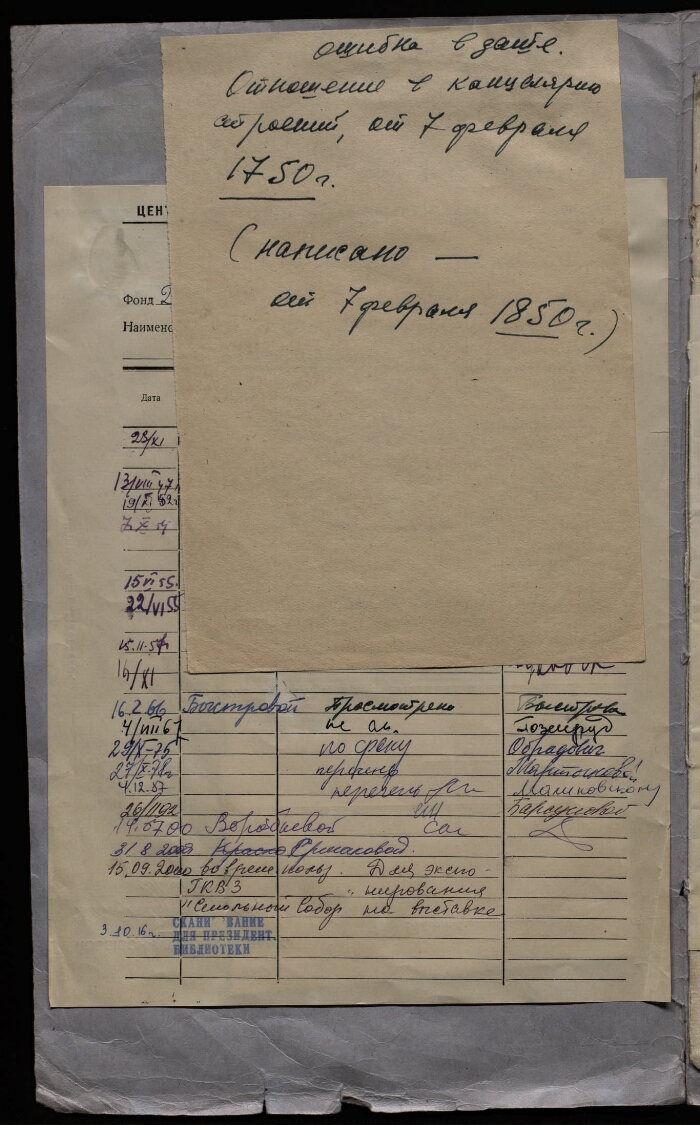 ошибка в дате.
Отношение в канцелярию
строений, от 7 февраля
1750 г.
(написано —
от 7 февраля 1850 г.)
ЦЕНТ
Фонд
Наимено
Дата
28/XI
13/VIII 47
19/X 52
7 X 54
15 VI 55.
22/VI 55
15.11.57
16/XI
16.2.66 Быстровой Просмотрено Быстрова
4/VIII 67
29/X-75 по сроку Обрадович
27/X-78 Мартынковой
4.12.87 перечень Малиновскому
26/II 92 Барсуковой
14.57.00 Воробьевой
31.8.2000
15.09.2000 во врем. польз. Для экспо-
ГКВЗ нирования
"Смольный Собор на выставке
3.10.16 г. СКАНИ ВАНИЕ
ДЛЯ ПРЕЗИДЕНТ.
БИБЛИОТЕКИ